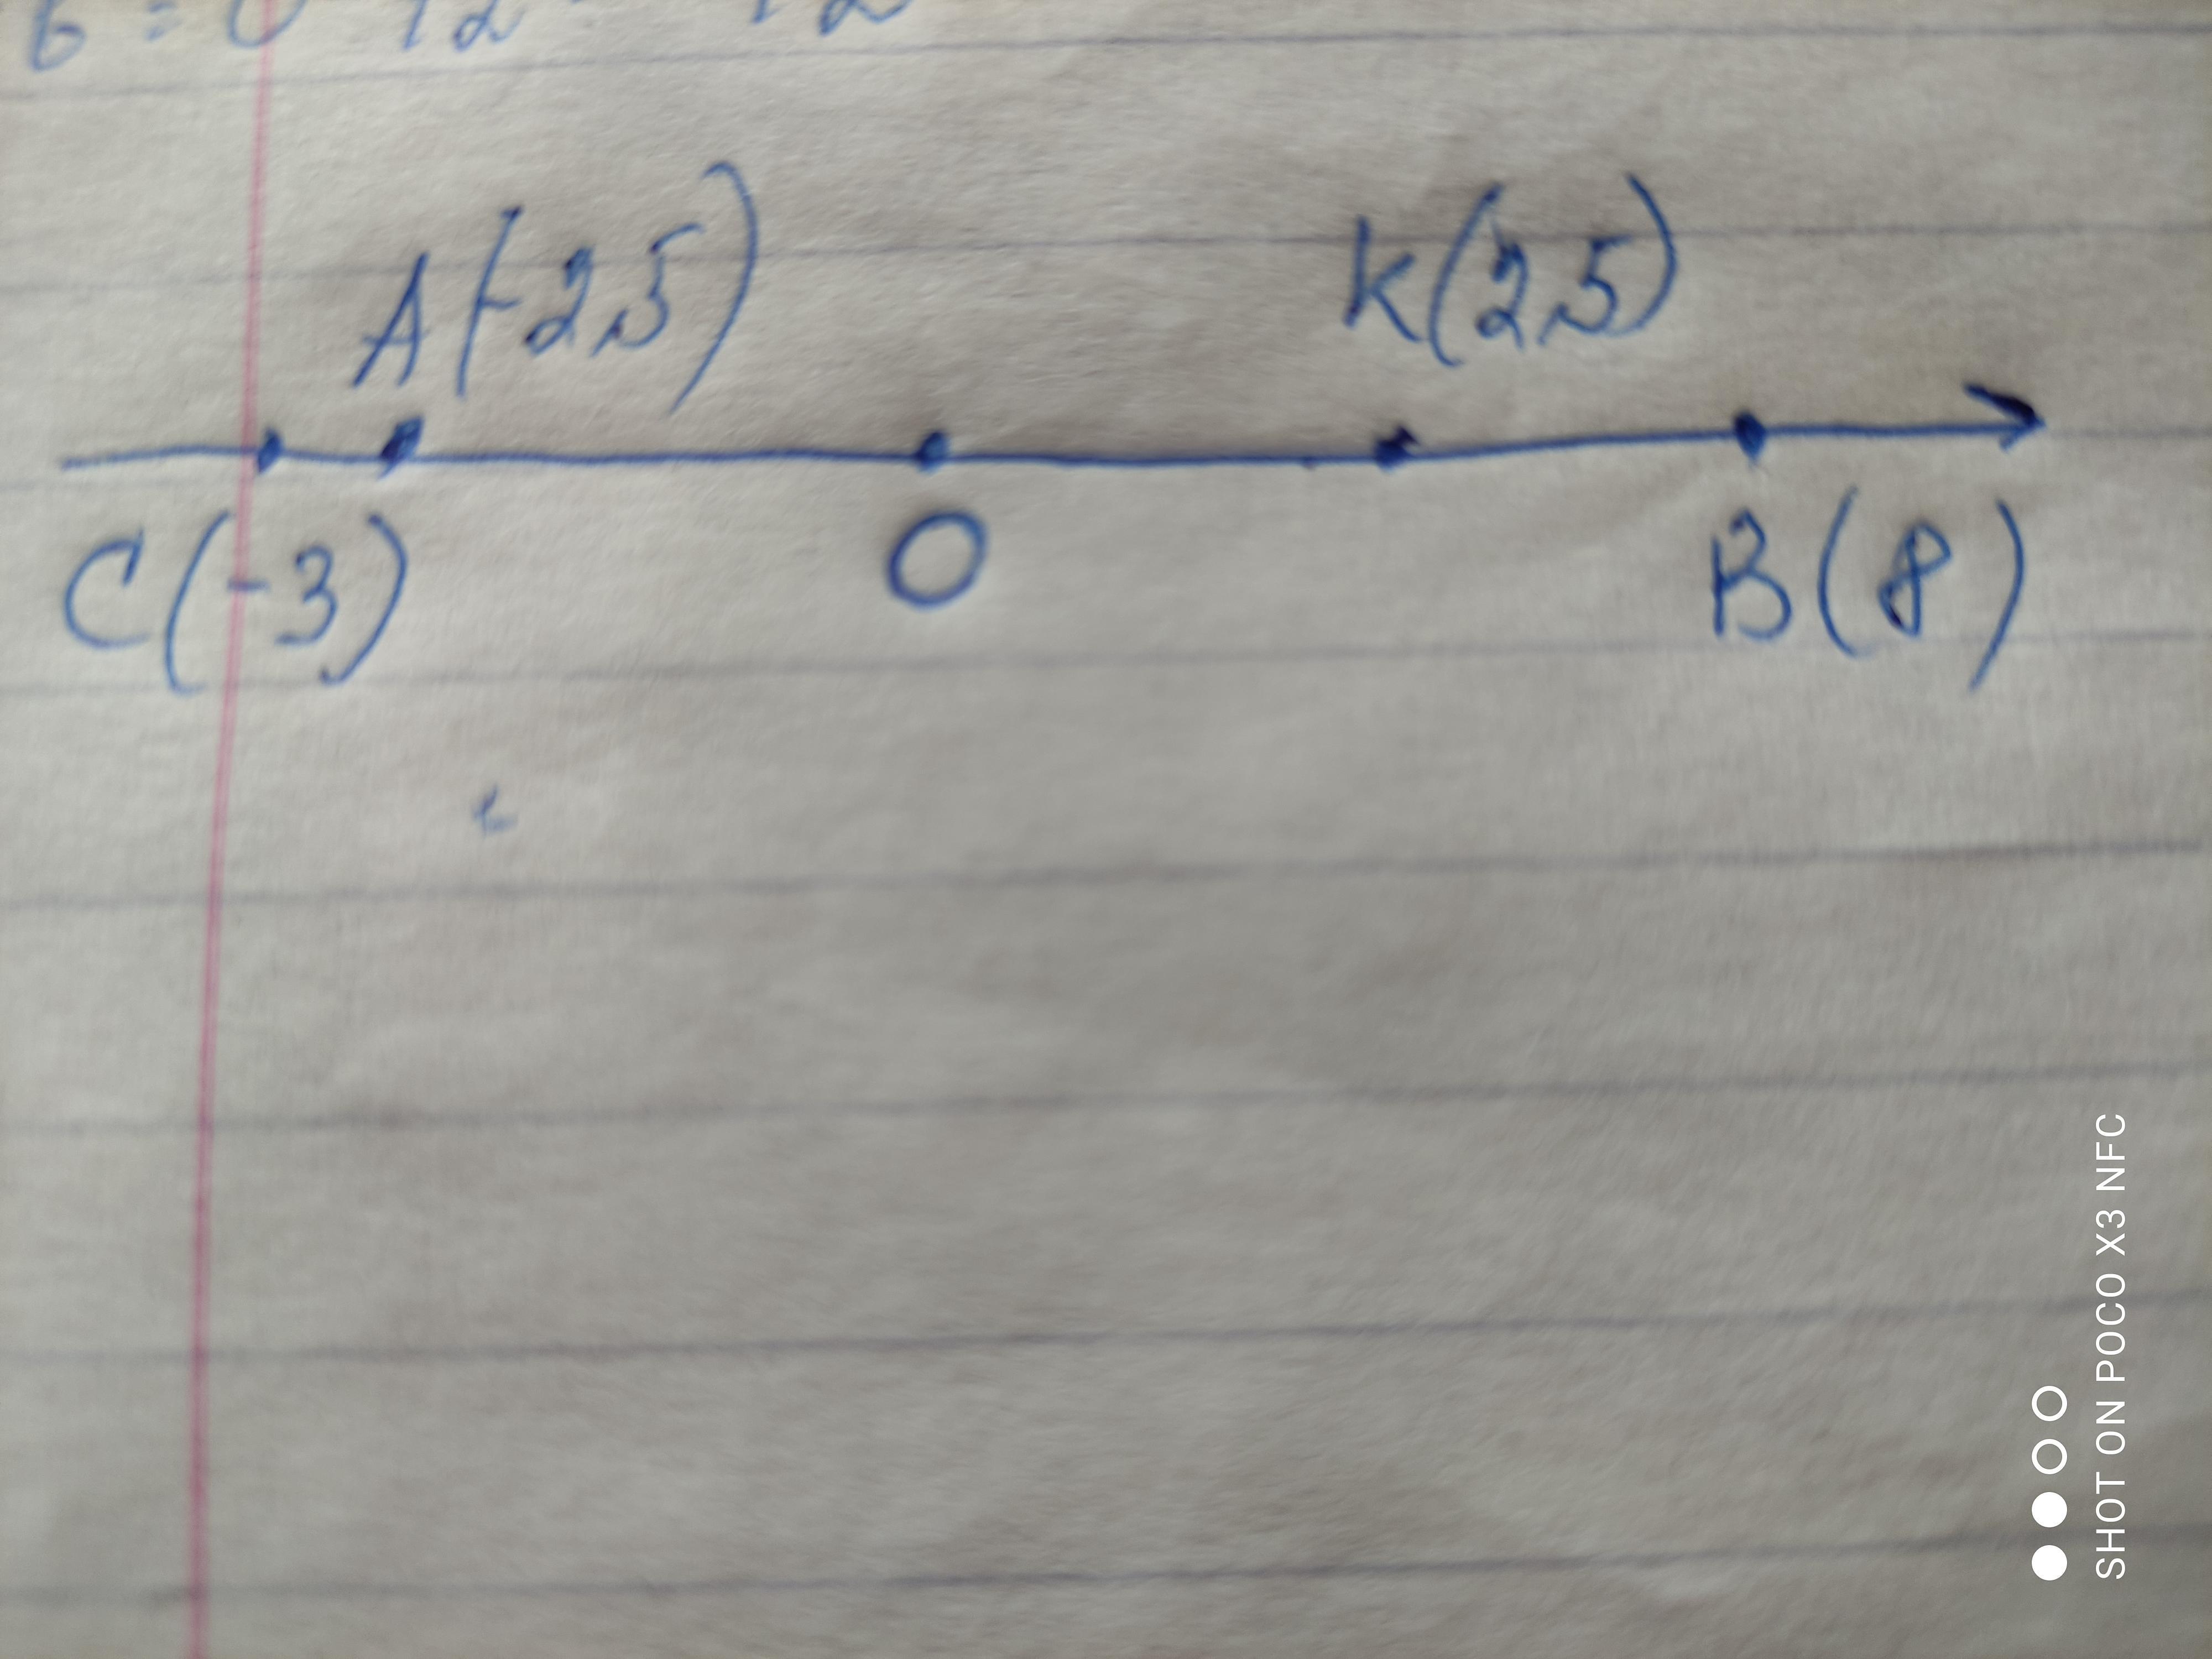 A(-2,5) K(2,5)
C(-3) O B(8)
SHOT ON POCO X3 NFC